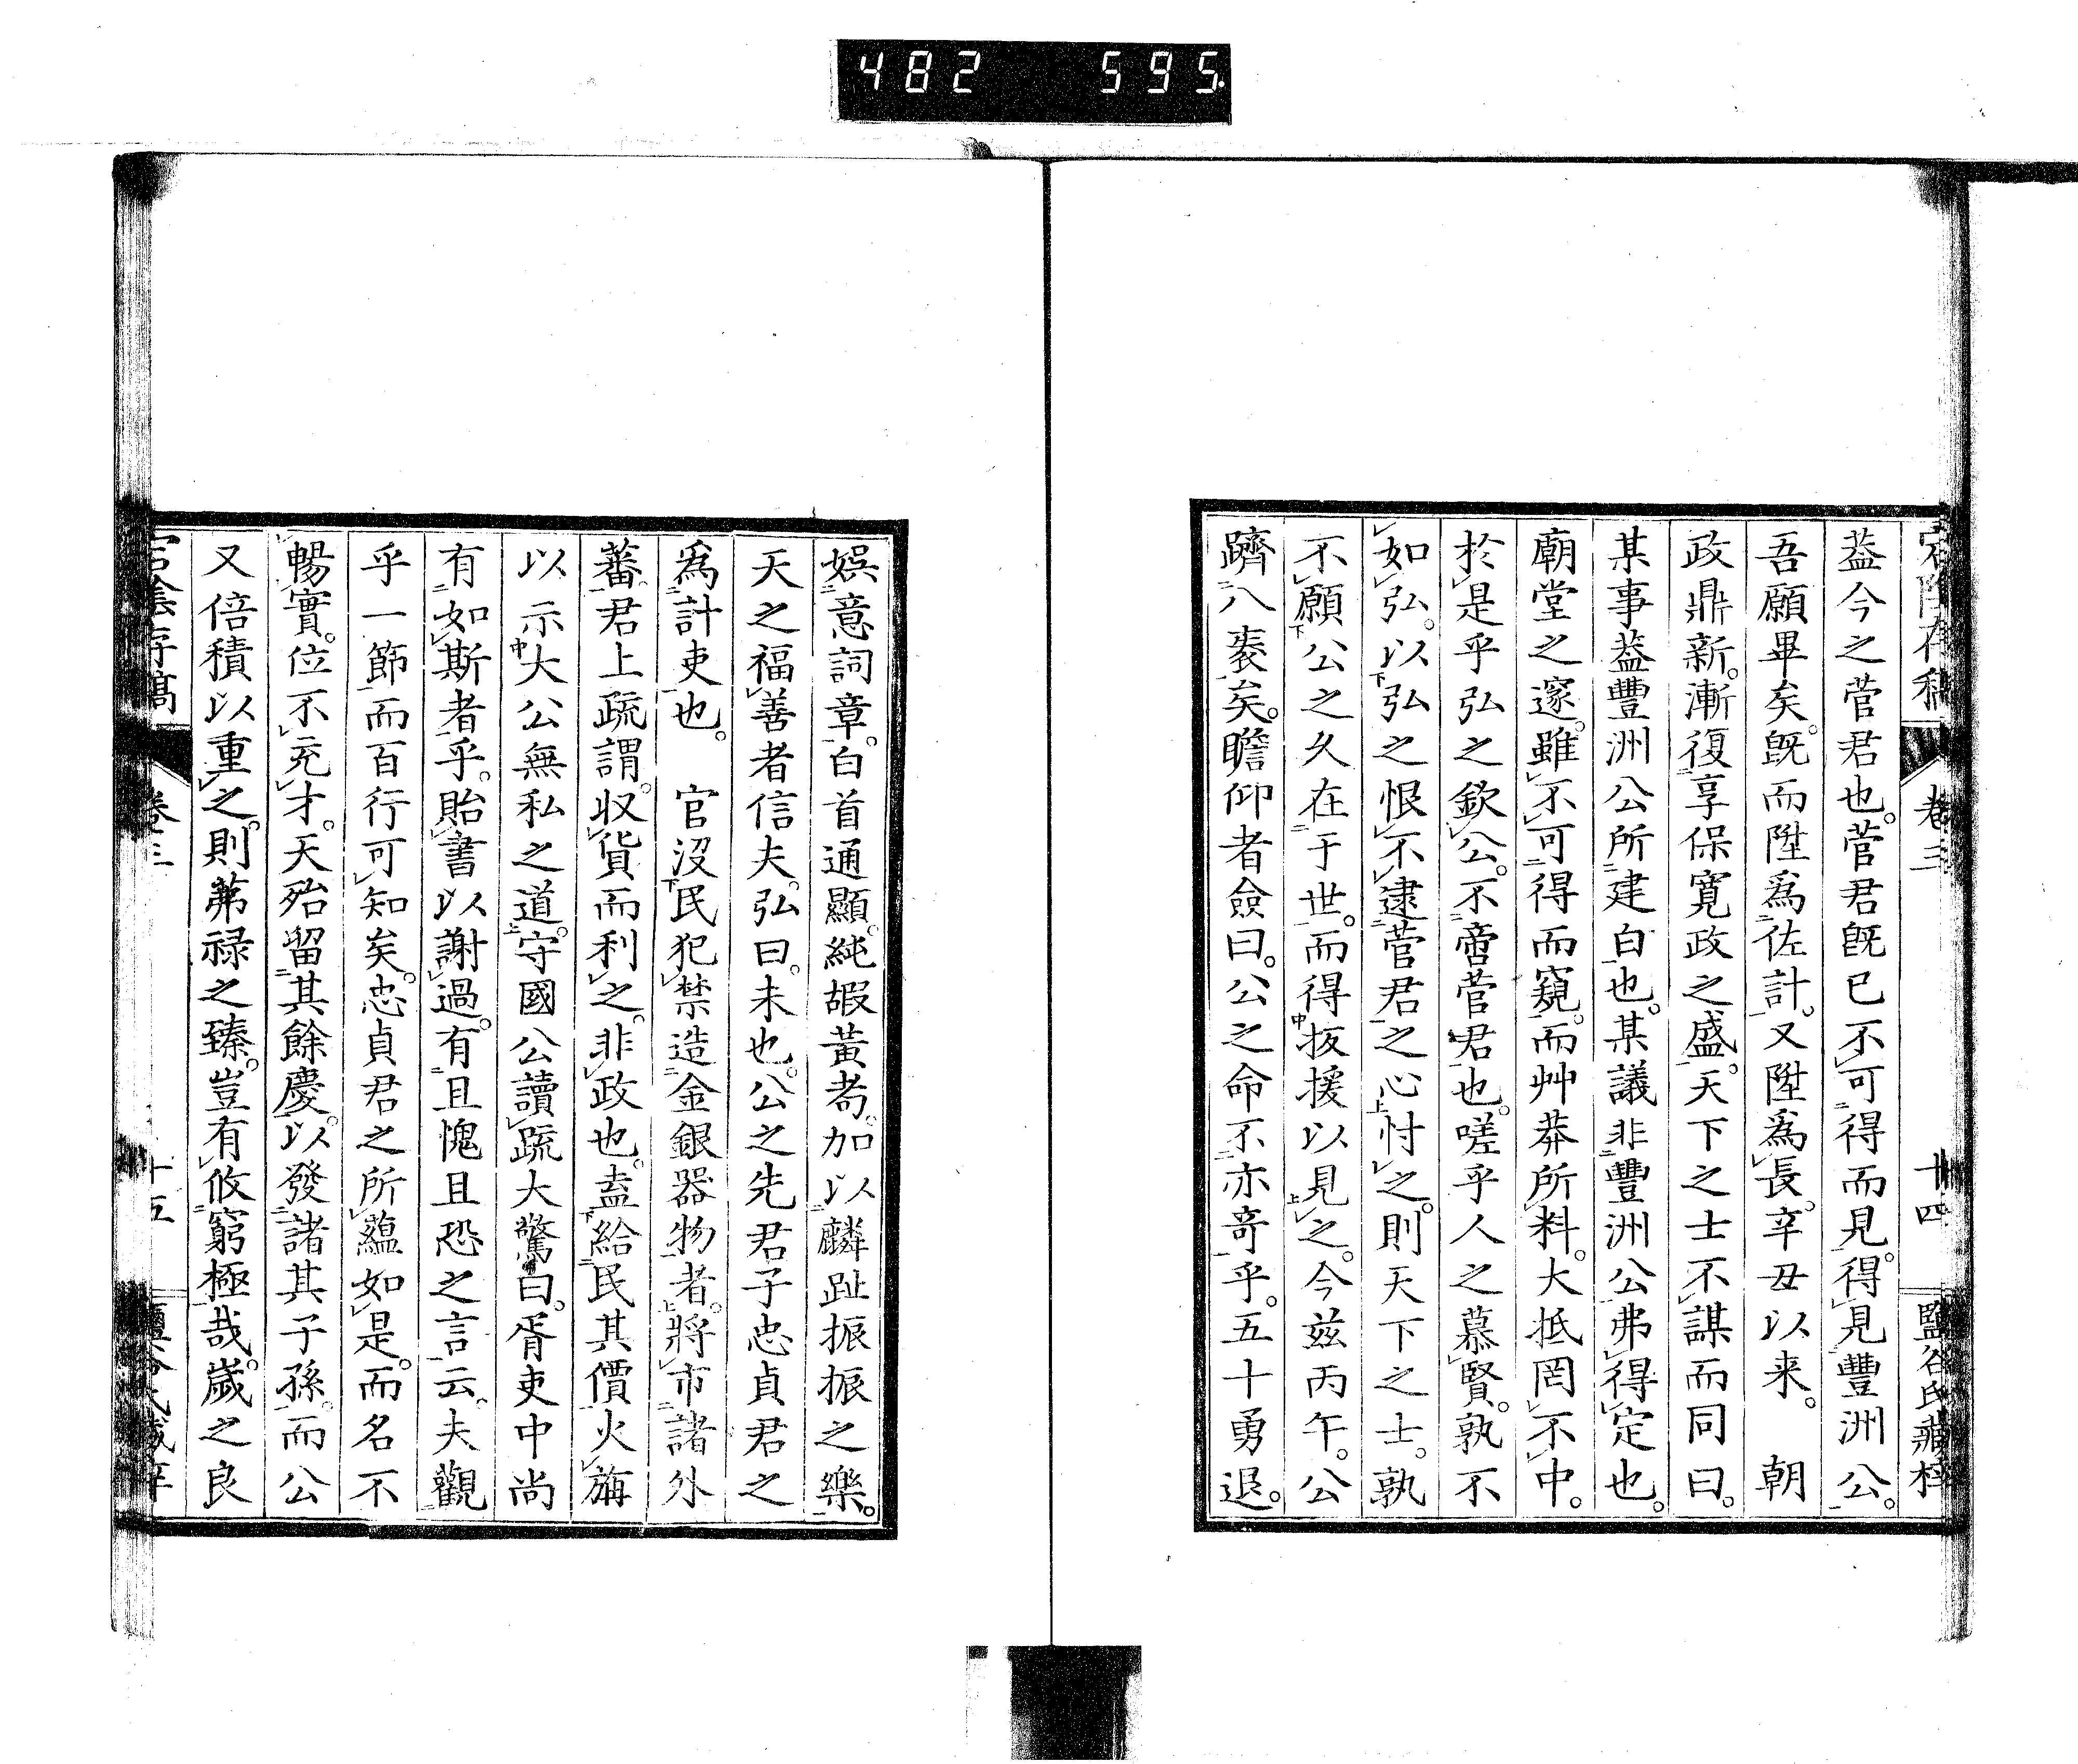 482 595
卷三 十四 鹽谷氏藏梓
葢今之菅君也。菅君既已不可得而見。得見豐洲公。
吾願畢矣。既而陞爲佐計。又陞爲長。辛丑以来。 朝
政鼎新。漸復享保寬政之盛。天下之士不謀而同曰。
某事葢豐洲公所建白也。某議非豐洲公弗得定也。
廟堂之邃。雖不可得而窺。而艸莽所料。大抵罔不中。
於是乎弘之欽公。不啻菅君也。嗟乎人之慕賢。孰不
如弘。以弘之恨不逮菅君之心忖之。則天下之士。孰
不願公之久在于世。而得扳援以見之。今茲丙午。公
躋八袠矣。瞻仰者僉曰。公之命不亦竒乎。五十勇退。
娯意詞章。白首通顯。純嘏黃耇。加以麟趾振振之樂。
天之福善者信夫。弘曰。未也。公之先君子忠貞君之
爲計吏也。 官沒民犯禁造金銀器物者。將市諸外
蕃。君上疏謂。収貨而利之。非政也。盍給民其價火旃
以示大公無私之道。守國公讀疏大驚曰。胥吏中尚
有如斯者乎。貽書以謝過。有且愧且恐之言云。夫觀
乎一節而百行可知矣。忠貞君之所蘊如是。而名不
暢實。位不充才。天殆留其餘慶。以發諸其子孫。而公
又倍積以重之。則茀禄之臻。豈有攸窮極哉。歲之良
宕陰存稿 卷三 十五